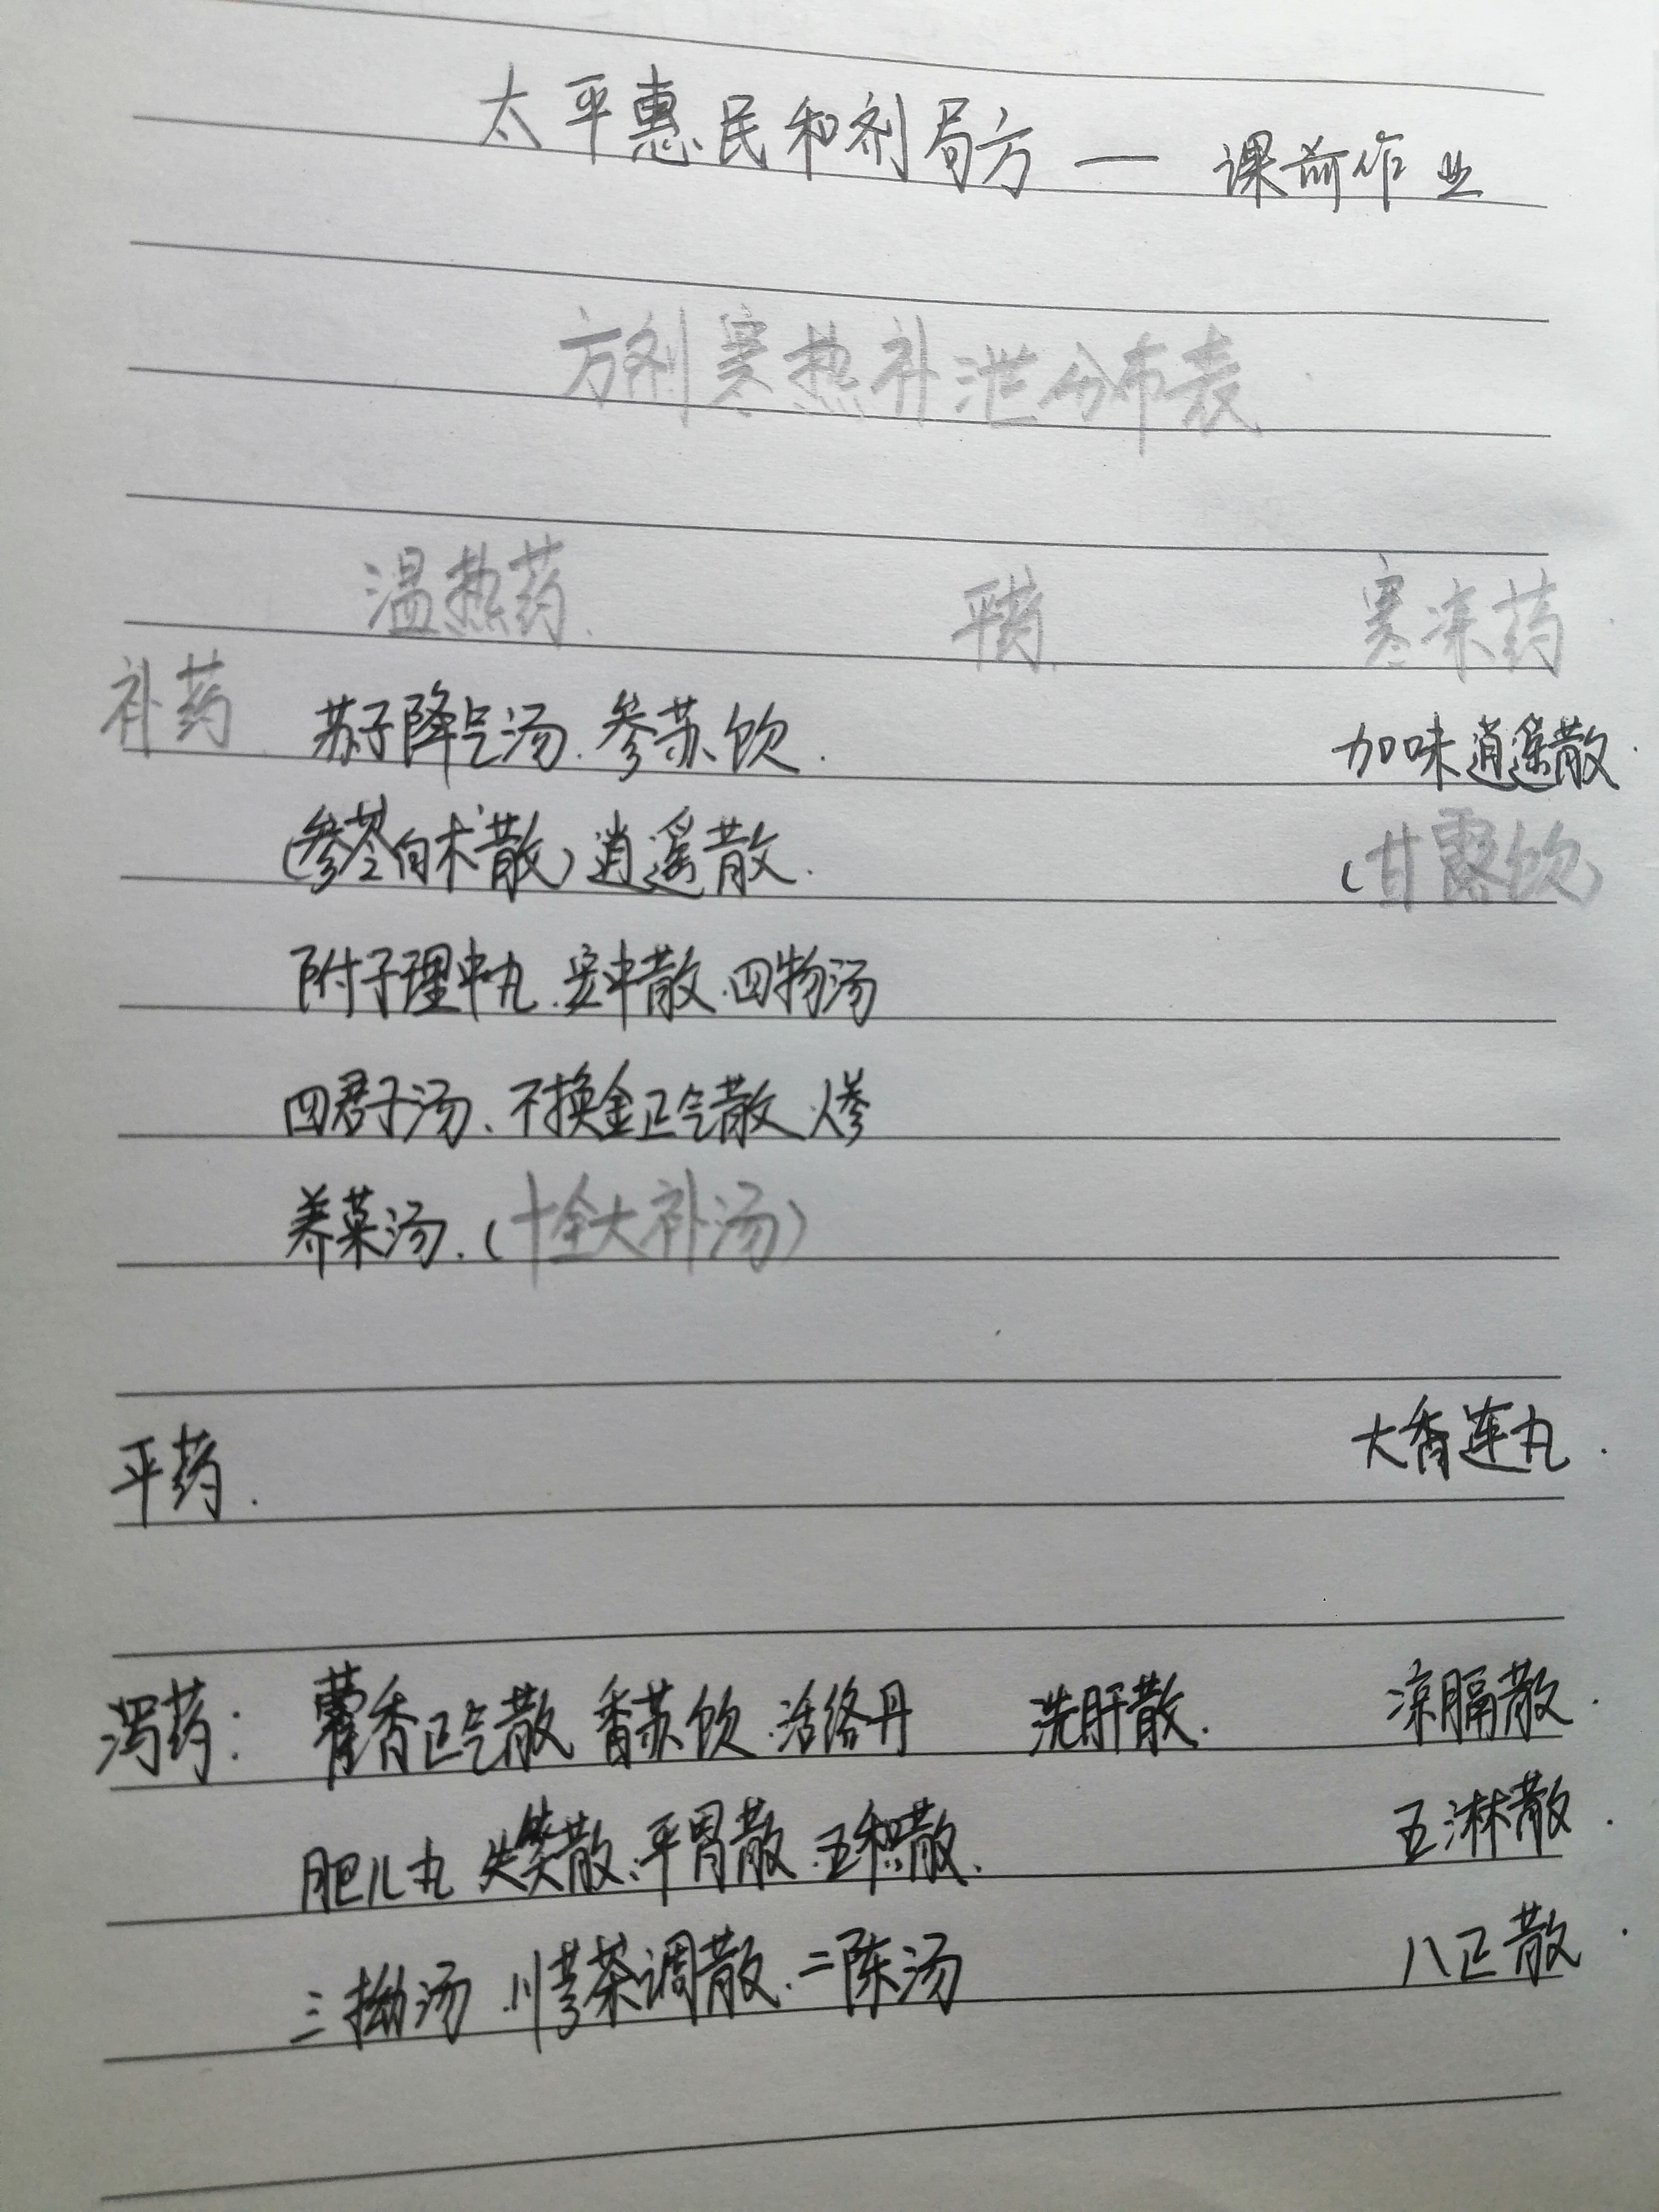 太平惠民和剂局方 — 课前作业
方剂寒热补泄分布表
温热药. 平药. 寒凉药
补药. 苏子降气汤. 参苏饮. 加味逍遥散.
(参苓白术散) 逍遥散. (甘露饮)
附子理中丸. 安中散. 四物汤
四君子汤、不换金正气散. 人参
养荣汤. (十全大补汤)
平药. 大香连丸.
泻药: 藿香正气散 香苏饮. 活络丹 洗肝散. 凉膈散.
肥儿丸 失笑散、平胃散. 五积散. 五淋散.
三拗汤. 川芎茶调散. 二陈汤 八正散.